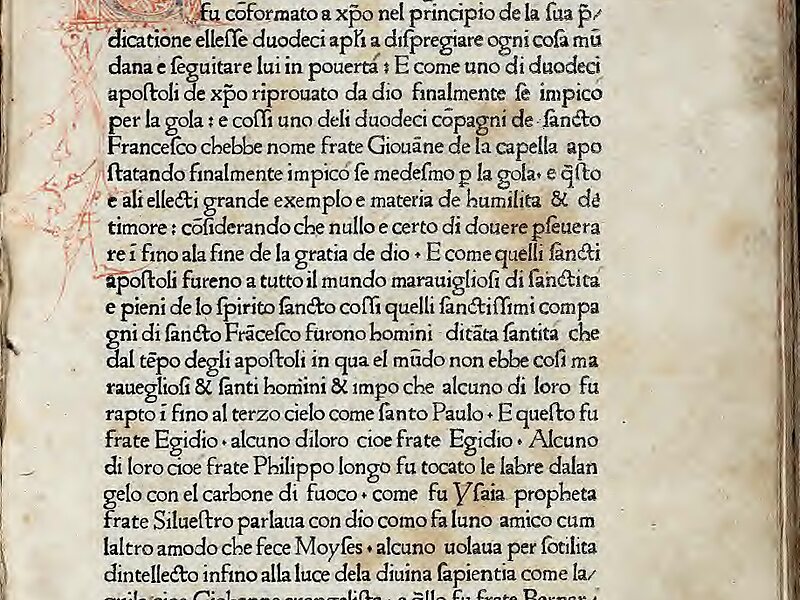 fu cōformato a xp̄o nel principio de la ſua p̄/
dicatione elleſſe duodeci apl̄i a diſpregiare ogni coſa mū
dana e ſeguitare lui in pouertá : E come uno di duodeci
apoſtoli de xp̄o riprouato da dio finalmente ſe impico
per la gola : e coſſi uno deli duodeci cōpagni de ſancto
Franceſco chebbe nome frate Giouāne de la capella apo
ſtatando finalmente impico ſe medeſmo p la gola. e q̄ſto
e ali ellecti grande exemplo e materia de humilita & de
timore : cōſiderando che nullo e certo di douere pſeuera
re ī fino ala fine de la gratia de dio . E come quelli ſancti
apoſtoli fureno a tutto il mundo marauiglioſi di ſanctita
e pieni de lo ſpirito ſancto coſſi quelli ſanctiſſimi compa
gni di ſancto Frāceſco furono homini ditāta ſantita che
dal tēpo degli apoſtoli in qua el mūdo non ebbe coſi ma
rauegliosi & ſanti homini & impo che alcuno di loro fu
rapto ī fino al terzo cielo come ſanto Paulo . E queſto fu
frate Egidio . alcuno diloro cioe frate Egidio . Alcuno
di loro cioe frate Philippo longo fu tocato le labre dalan
gelo con el carbone di fuoco . come fu Yſaia propheta
frate Silueſtro parlaua con dio como fa luno amico cum
laltro amodo che fece Moyſes . alcuno uolaua per ſotilita
dintellecto infino alla luce dela diuina ſapientia come la/